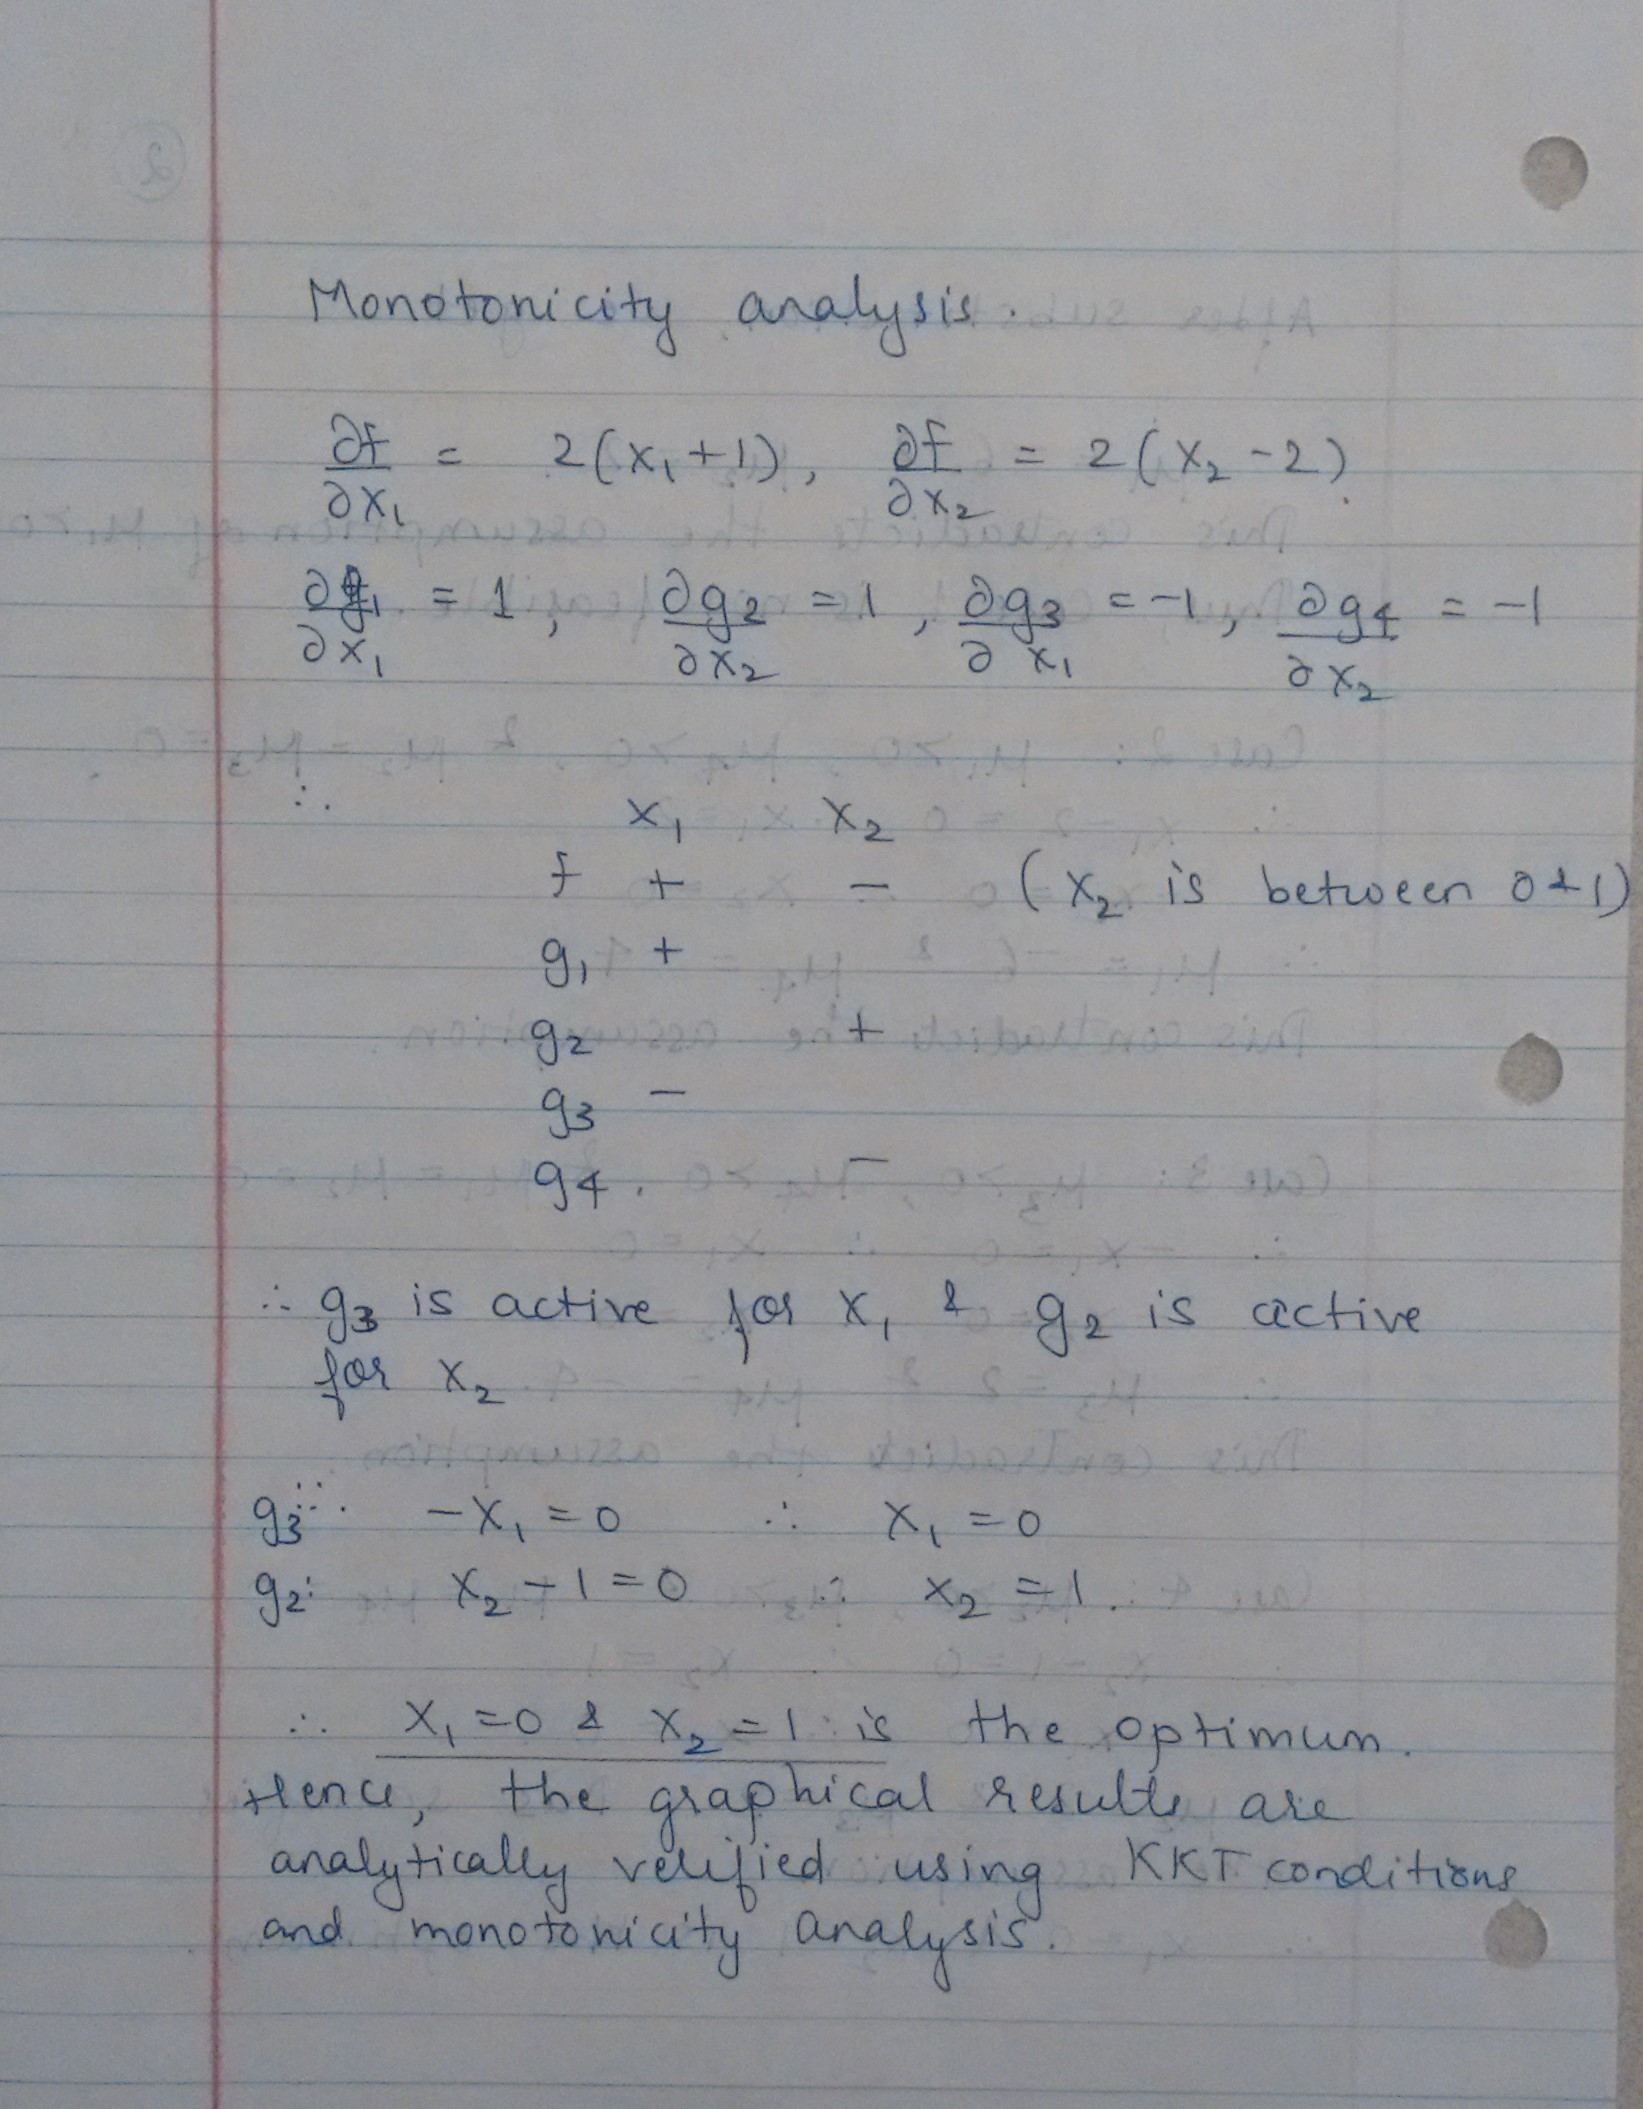 Monotonicity analysis.
∂f/∂x₁ = 2(x₁+1), ∂f/∂x₂ = 2(x₂-2)
∂g₁/∂x₁ = 1, ∂g₂/∂x₂ = 1, ∂g₃/∂x₁ = -1, ∂g₄/∂x₂ = -1
∴ x₁ x₂
f + - (x₂ is between 0 & 1)
g₁ +
g₂ +
g₃ -
g₄. -
∴ g₃ is active for x₁ & g₂ is active
for x₂
g₃: -x₁ = 0 ∴ x₁ = 0
g₂: x₂ - 1 = 0 ∴ x₂ = 1.
∴ x₁ = 0 & x₂ = 1 is the optimum.
Hence, the graphical results are
analytically verified using KKT conditions
and monotonicity analysis.